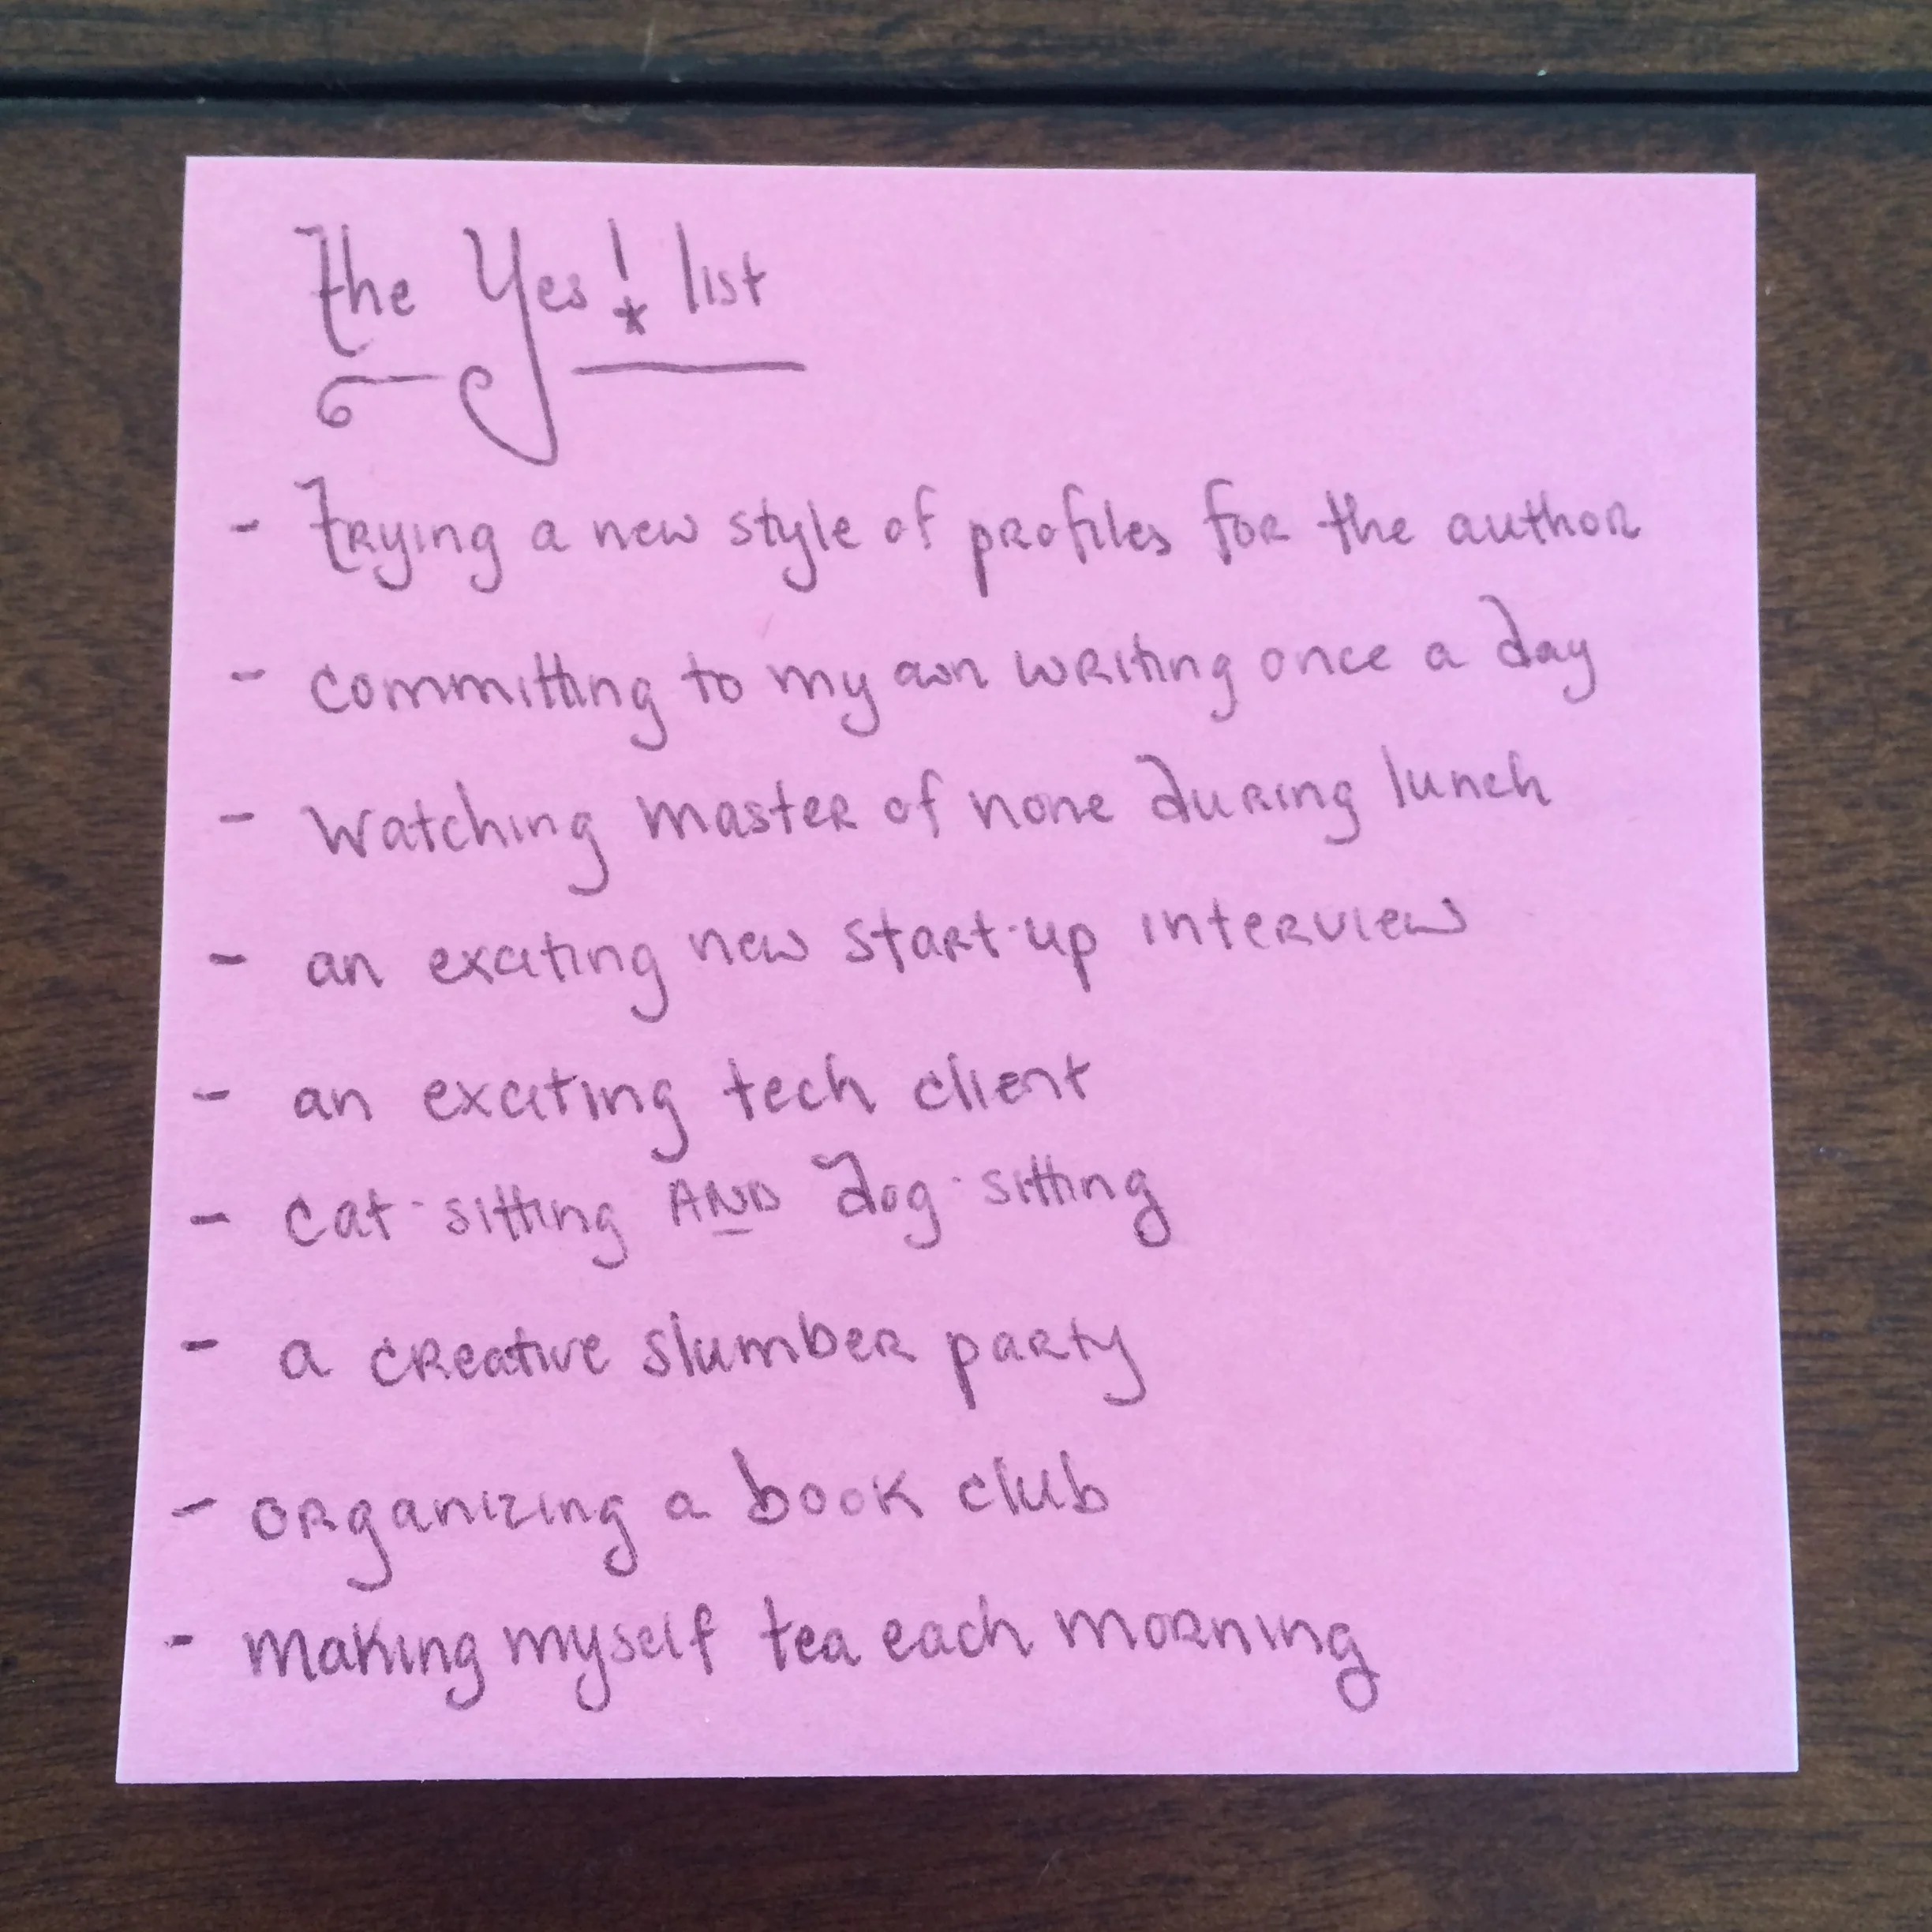 the Yes! list
- Trying a new style of profiles for the author
- committing to my own writing once a day
- Watching master of none during lunch
- an exciting new start-up interview
- an exciting tech client
- cat-sitting AND dog-sitting
- a creative slumber party
- organizing a book club
- making myself tea each morning